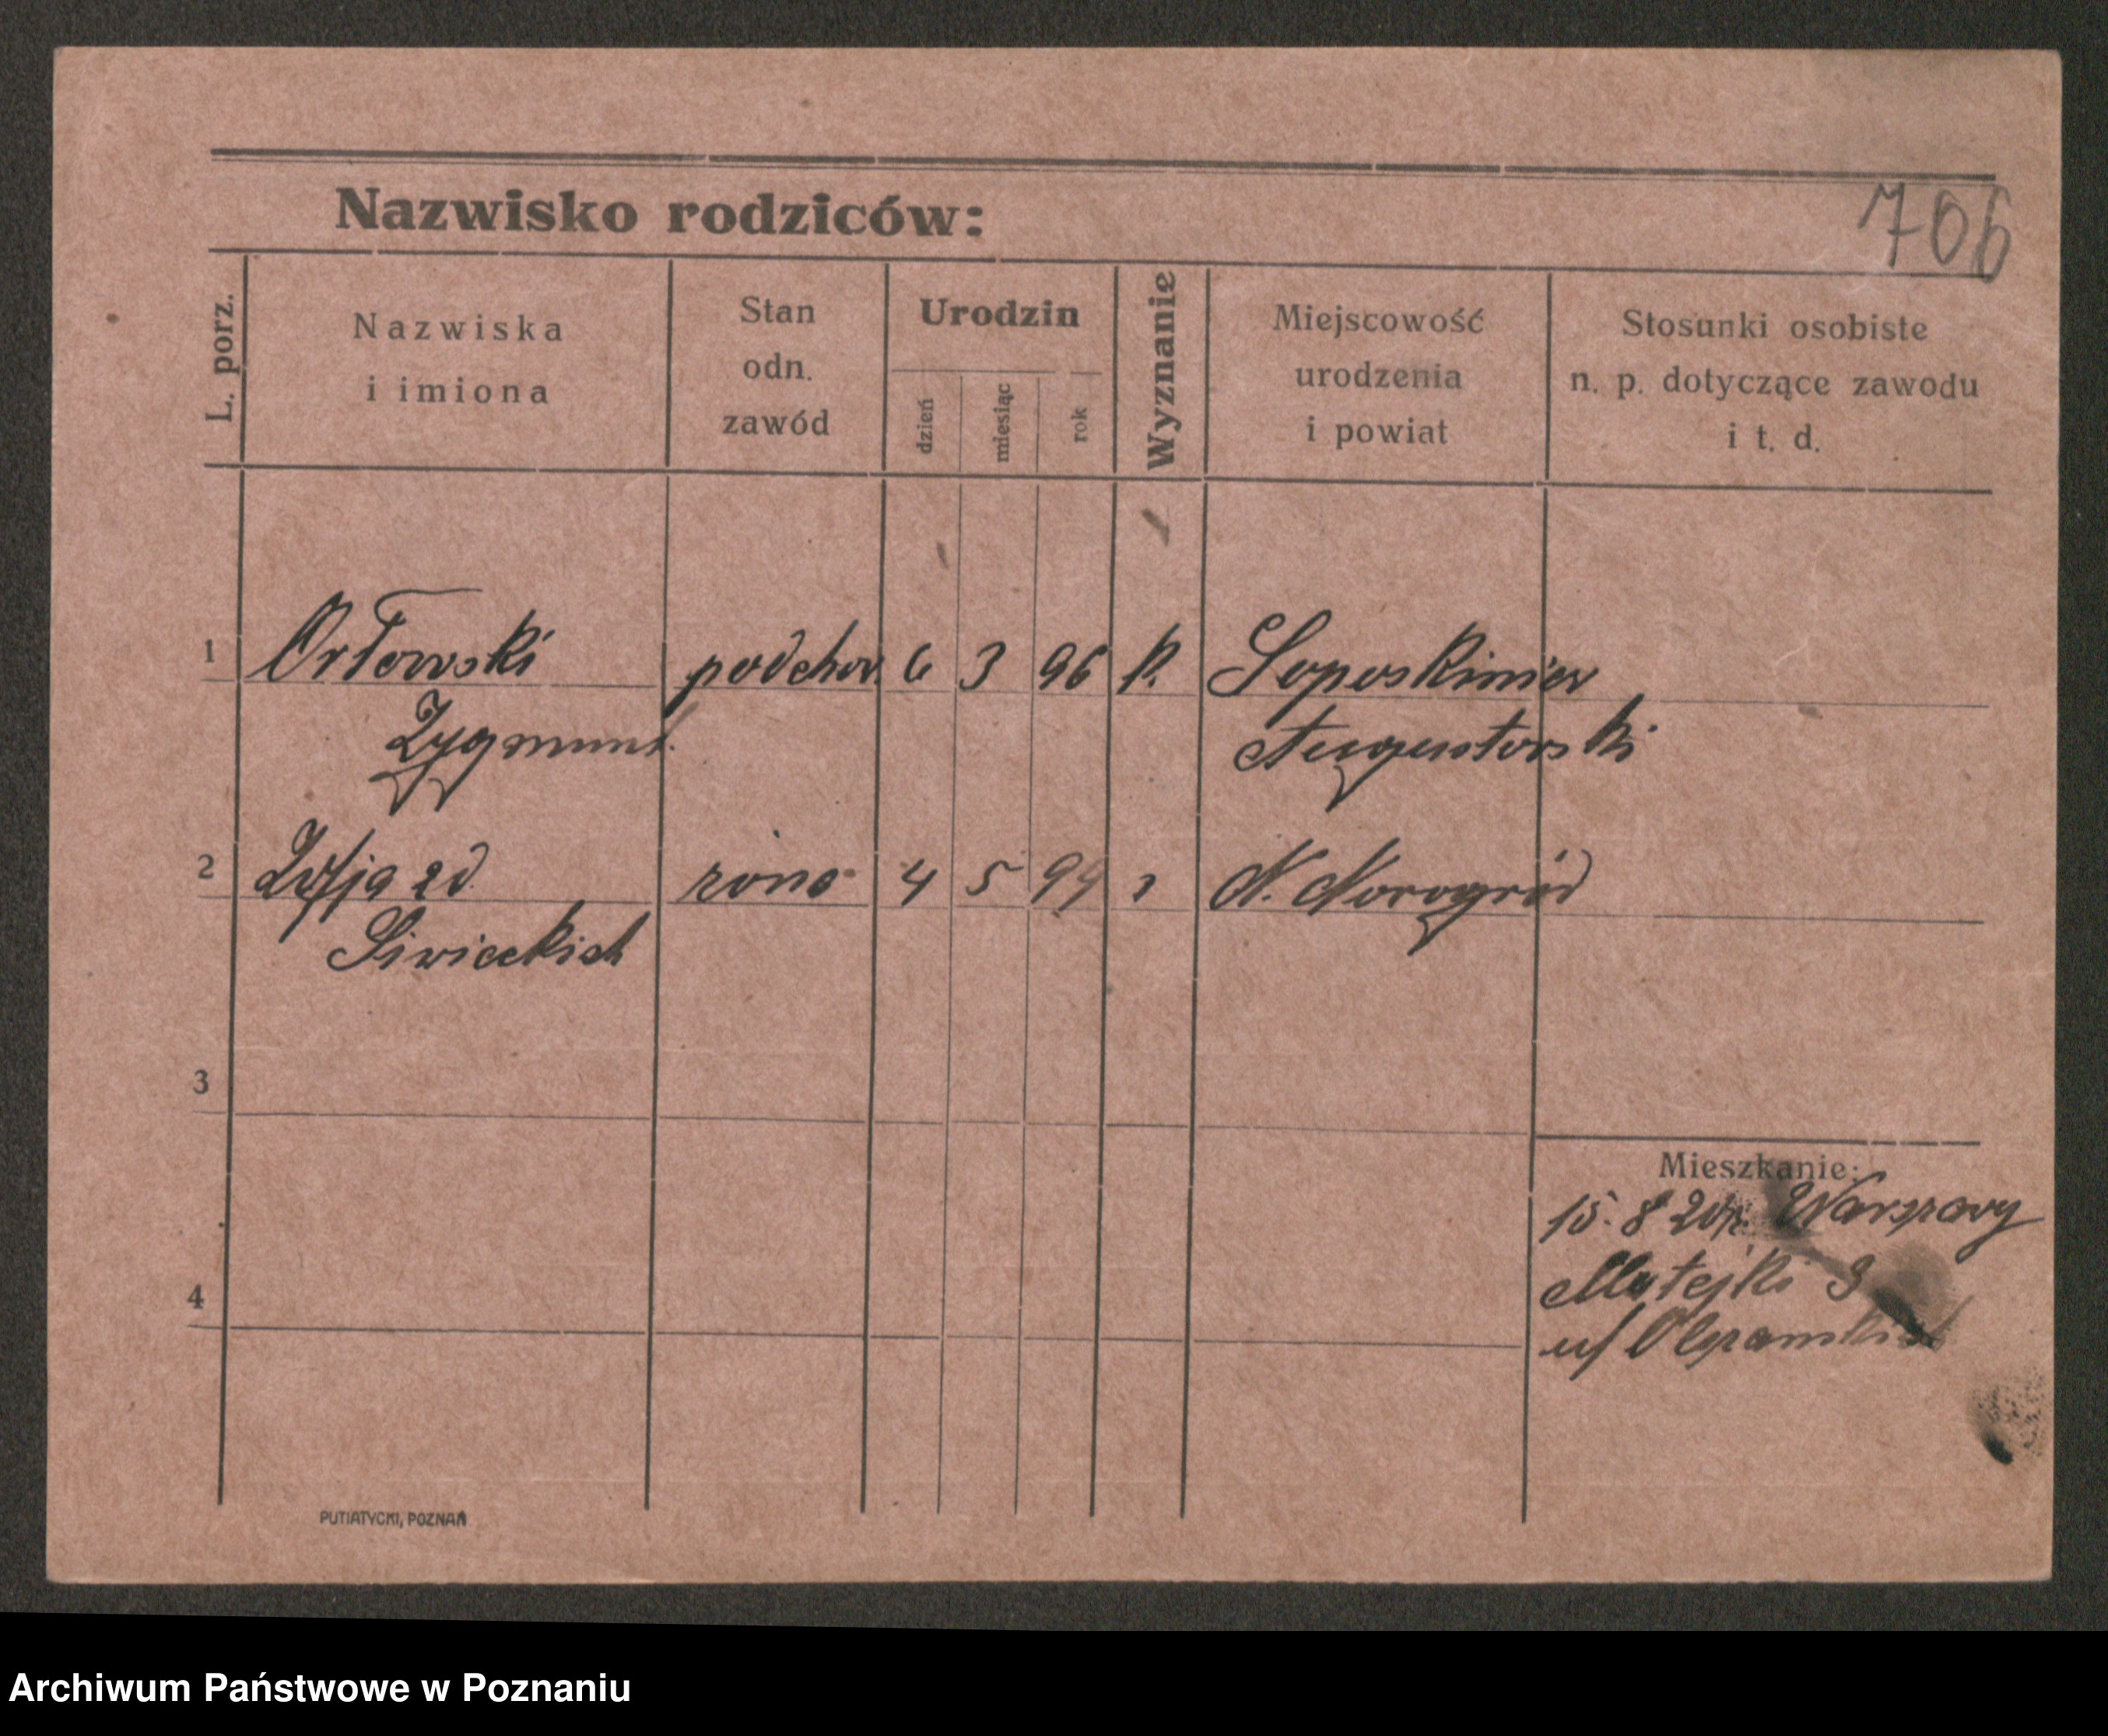 706
Nazwisko rodziców:
L. porz.
Nazwiska
i imiona
Stan
odn.
zawód
Urodzin
dzień
miesiąc
rok
Wyznanie
Miejscowość
urodzenia
i powiat
Stosunki osobiste
n. p. dotyczące zawodu
i t. d.
1 Orłowski podchor. 6 3 96 k. Soposkiniew
Zygmunt. Augustowski
2 Zofja zd. żona 4 5 99 N. Nowogród
Siwickich
3
4
Mieszkanie:
15. 8 20 r. Warszawy
Matejki 9
u/
PUTIATYCKI, POZNAŃ
Archiwum Państwowe w Poznaniu